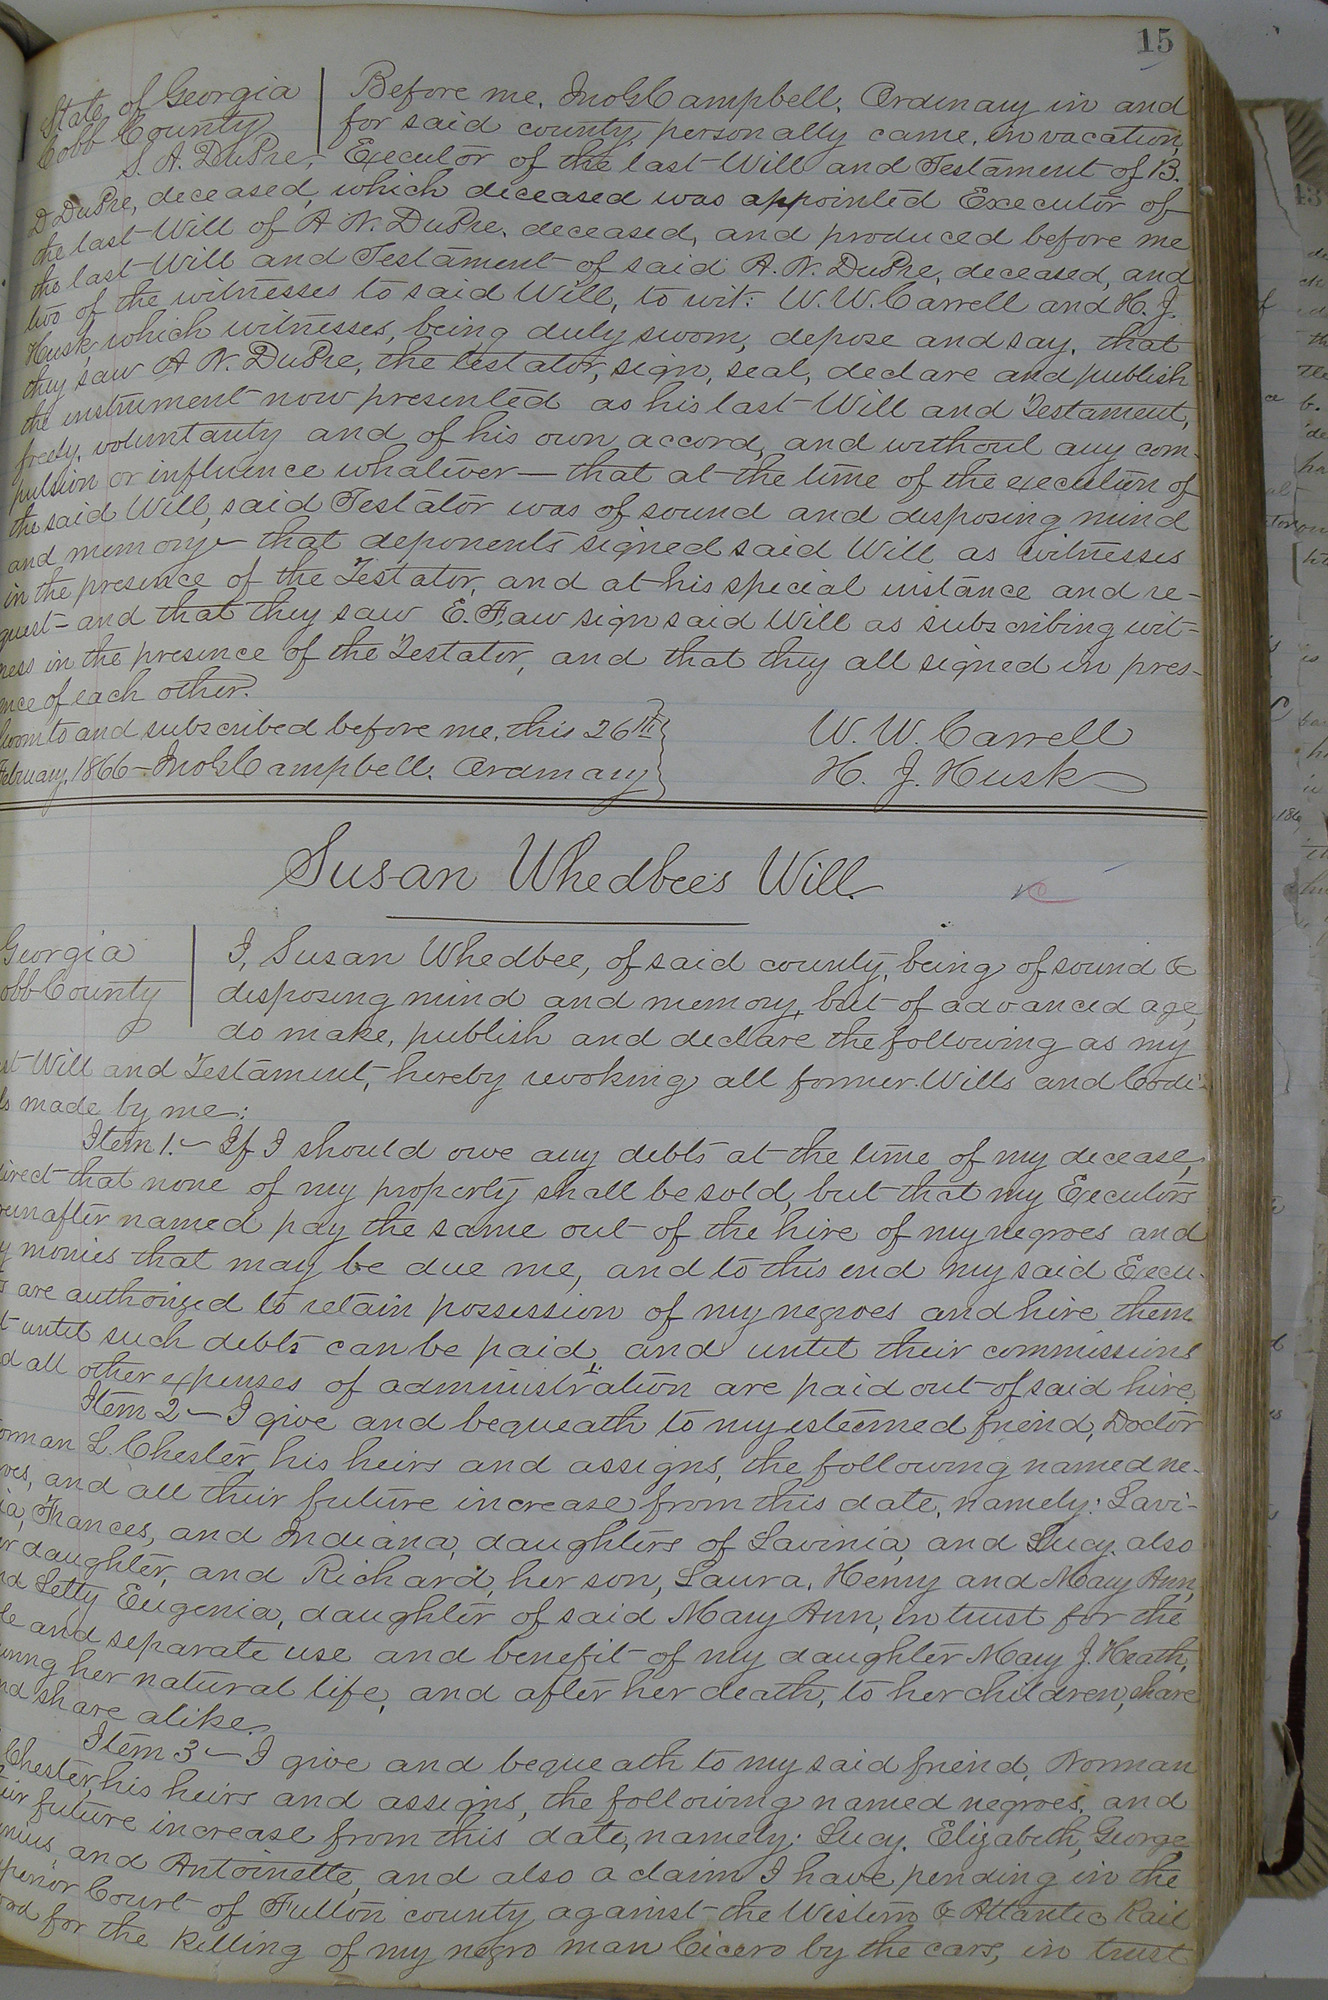 15
State of Georgia
Cobb County
Before me, Jno G Campbell, Ordinary in and
for said county, personally came, in vacation,
S. A. DuPre, Executor of the last Will and Testament of B.
D DuPre, deceased, which deceased was appointed Executor of
the last Will of A N. DuPre, deceased, and produced before me
the last Will and Testament of said A. N. DuPre, deceased, and
two of the witnesses to said Will, to wit: W. W. Carrell and H. J.
Husk, which witnesses, being duly sworn, depose and say, that
they saw A N. DuPre, the testator, sign, seal, declare and publish
the instrument now presented as his last Will and Testament,
freely, voluntarily and of his own accord, and without any com-
pulsion or influence whatever — that at the time of the execution of
the said Will, said Testator was of sound and disposing mind
and memory — that deponents signed said Will as witnesses
in the presence of the Testator, and at his special instance and re-
quest — and that they saw E. Faw sign said Will as subscribing wit-
ness in the presence of the Testator, and that they all signed in pres-
ence of each other.
Sworn to and subscribed before me, this 26th
February, 1866 — Jno G Campbell, Ordinary
W. W. Carrell
H. J. Husk
Susan Whedbee's Will.
Georgia
obb County
I, Susan Whedbee, of said county, being of sound &
disposing mind and memory, but of advanced age,
do make, publish and declare the following as my
st Will and Testament, hereby revoking all former Wills and Codi-
ls made by me:
Item 1. — If I should owe any debts at the time of my decease,
direct that none of my property shall be sold, but that my Executors
reinafter named pay the same out of the hire of my negroes and
y monies that may be due me, and to this end my said Execu-
s are authorized to retain possession of my negroes and hire them
t until such debts can be paid, and until their commissions
d all other expenses of administration are paid out of said hire.
Item 2 — I give and bequeath to my esteemed friend, Doctor
orman L. Chester, his heirs and assigns, the following named ne-
oes, and all their future increase from this date, namely: Lavi-
ia, Frances, and Indiana, daughters of Lavinia, and Lucy, also
er daughter, and Richard, her son, Laura, Henry and Mary Ann,
nd Letty Eugenia, daughter of said Mary Ann, in trust for the
le and separate use and benefit of my daughter Mary J. Heath,
uring her natural life, and after her death, to her children, share
nd share alike.
Item 3 — I give and bequeath to my said friend, Norman
Chester, his heirs and assigns, the following named negroes, and
eir future increase from this date, namely: Lucy, Elizabeth, George,
nius, and Antoinette, and also a claim I have pending in the
perior Court of Fulton county against the Western & Atlantic Rail
oad for the killing of my negro man Cicero by the cars, in trust